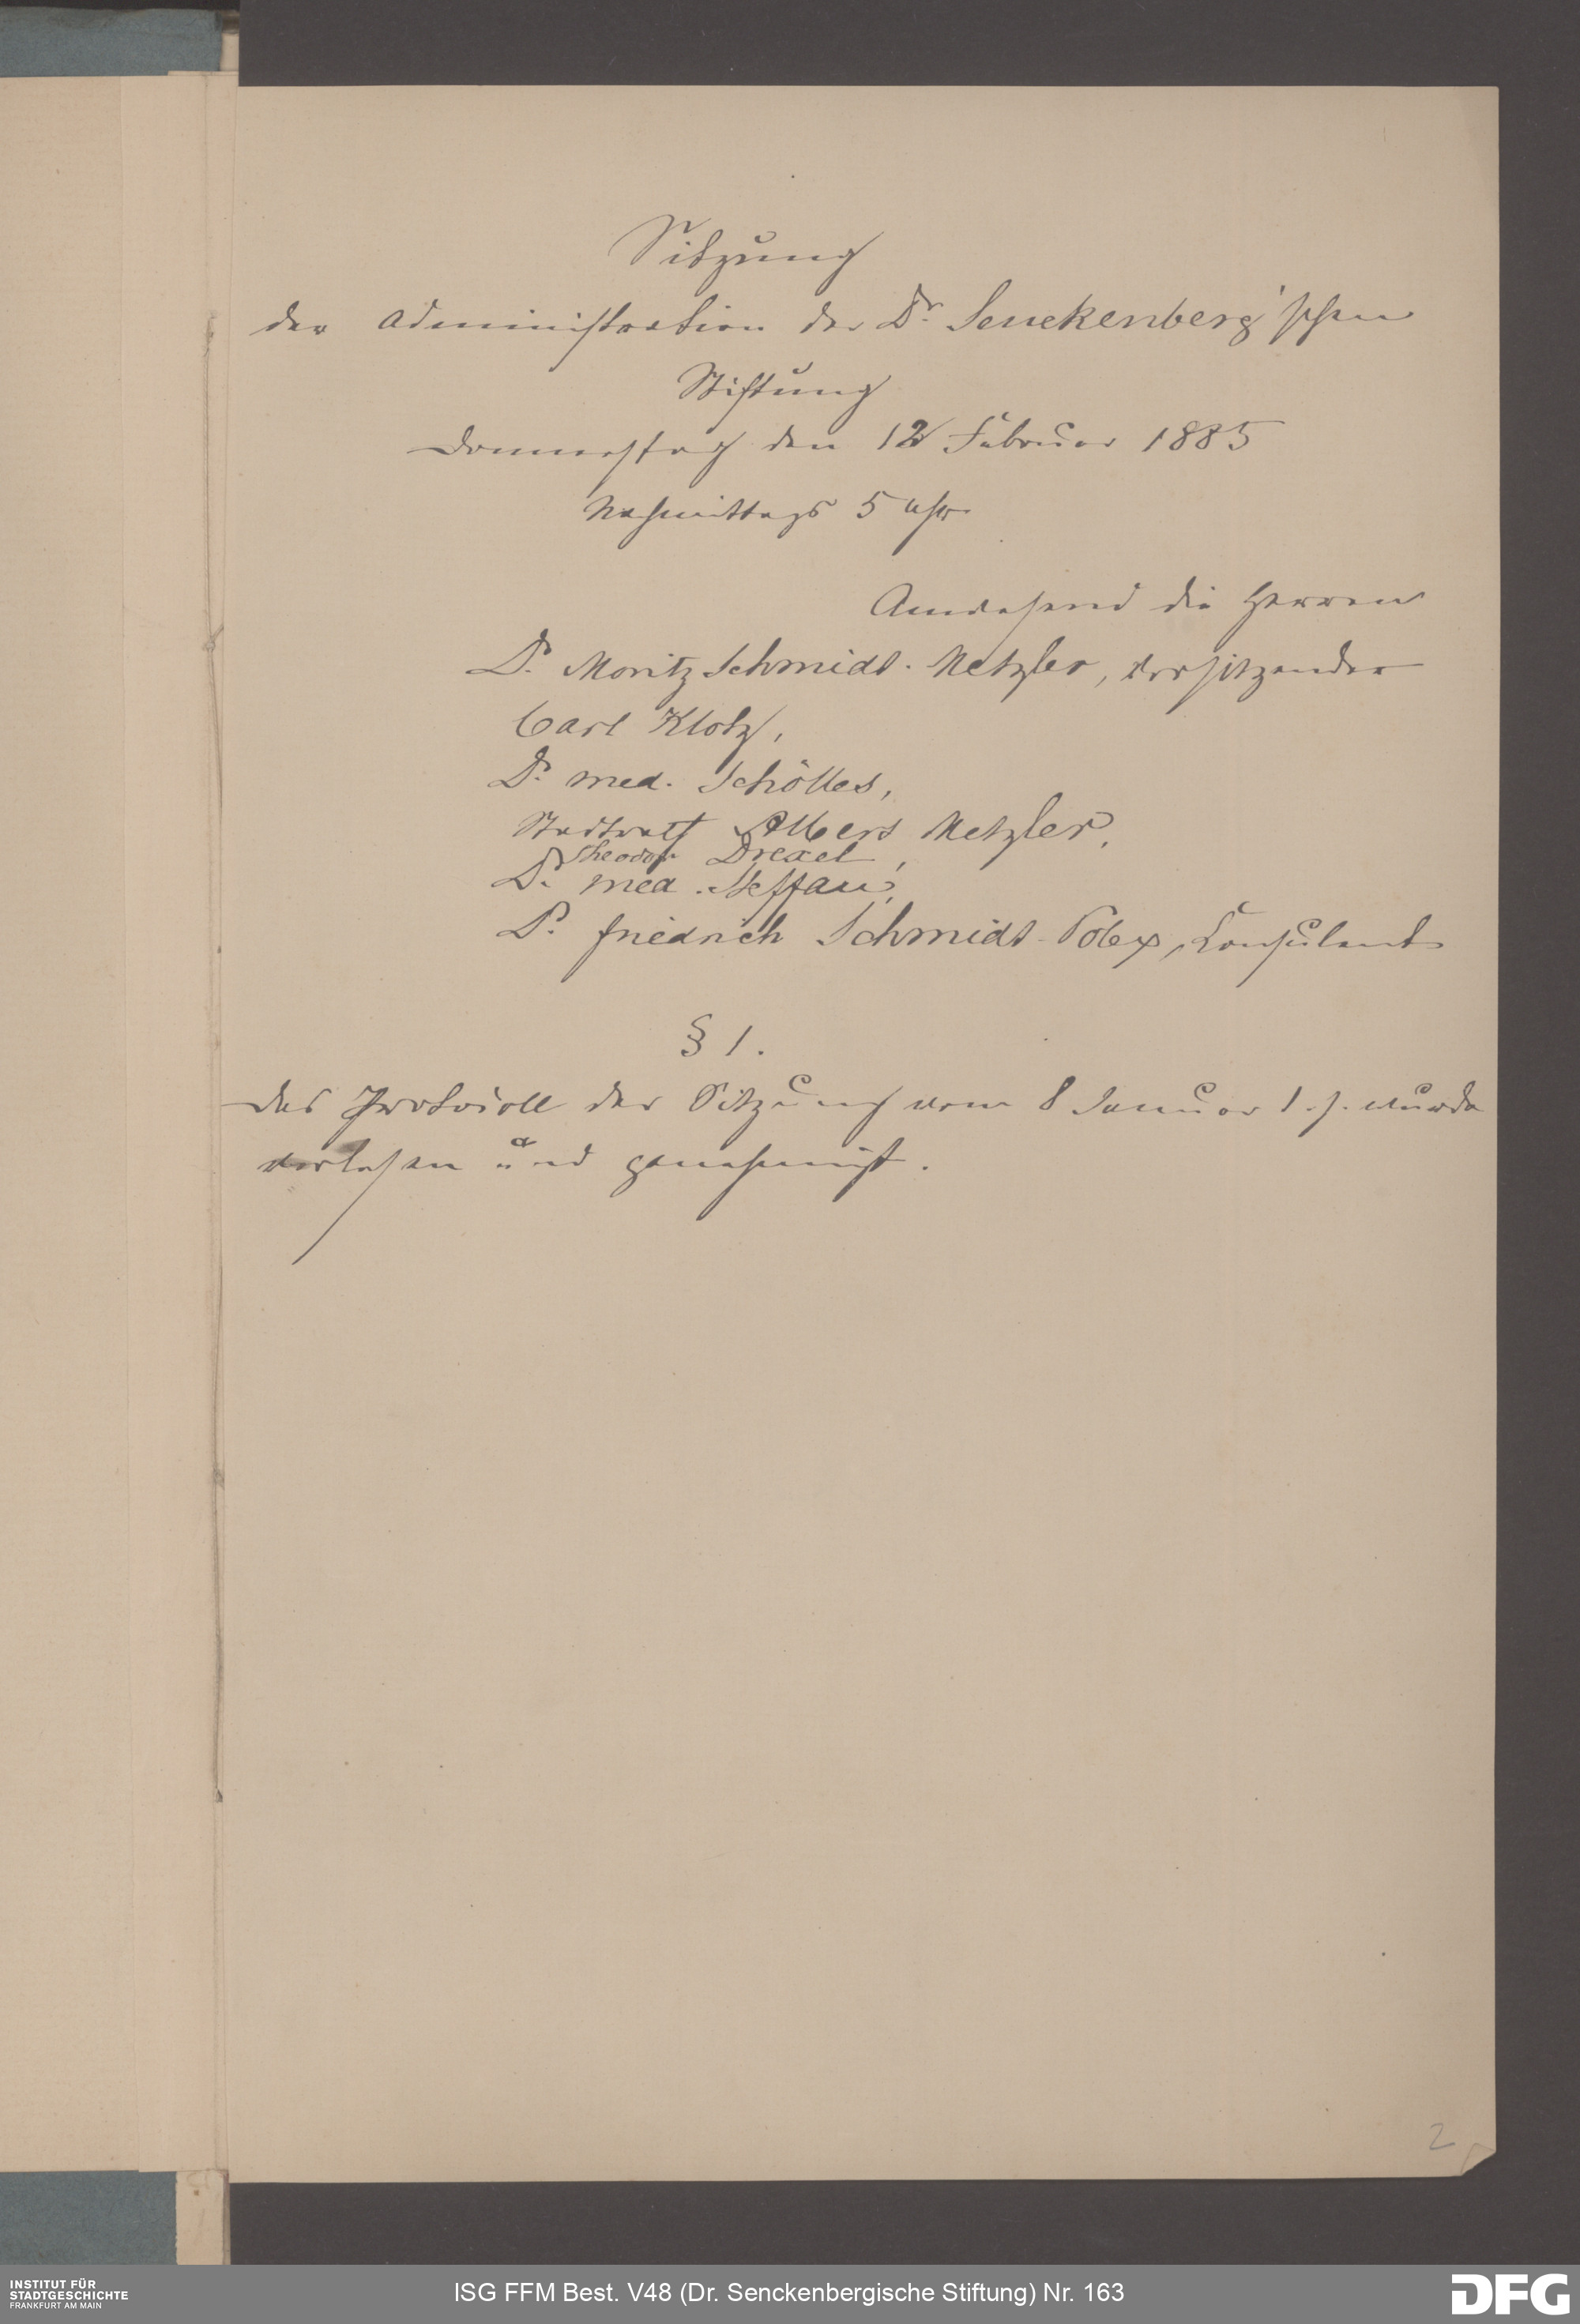 Sitzung
der Administration der Dr. Senckenberg'schen
Stiftung
Donnerstag den 12 Februar 1885
Nachmittags 5 Uhr
Anwesend die Herren
Dr. Moritz Schmidt-Metzler, Vorsitzender
Carl Klotz,
Dr. med. Schölles,
Stadtrath Albert Metzler,
Theodor Drexel,
Dr. med. Steffan,
Dr. Friedrich Schmidt-Polex, Consulent
§ 1.
Das Protocoll der Sitzung vom 8 Januar l. J. wurde
verlesen und genehmigt.
2
INSTITUT FÜR
STADTGESCHICHTE
FRANKFURT AM MAIN
ISG FFM Best. V48 (Dr. Senckenbergische Stiftung) Nr. 163
DFG